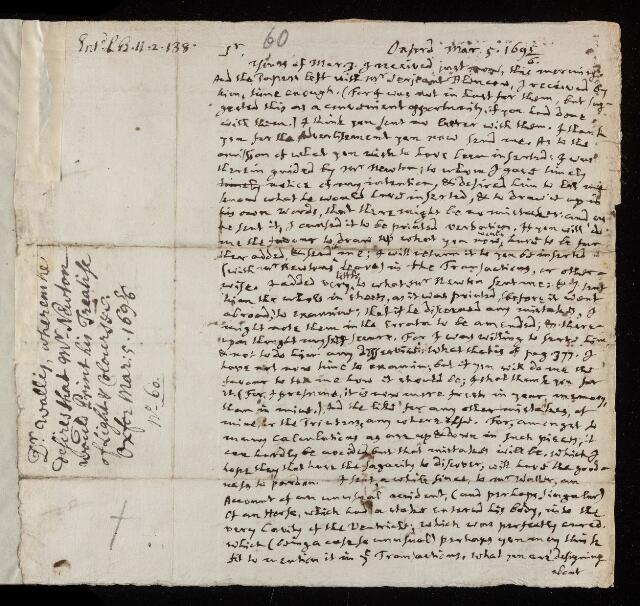 Ent'd LB.11.2.138.
60
Oxford Mar. 5. 1695/6
Sr.
Yours of Mar. 3. I received just now, this morning
And the Papers left with Mr Serjeant Blencow, I received by
him, time enough. (For I was not in hast for them, but sug-
gested this as a convenient opportunity, if you had done
with them.) I think you sent no letter with them. I thank
you for the Advertisement you now send me. As to the
omission of what you wish to have been inserted: I was
therein guided by Mr Newton; to whom I gave timely
notice of my intention, & desired him to let me
know what he would have inserted, & to draw it up in
his own words, that there might be no mistakes: and as
he sent it, I caused it to be printed verbatim. If you will do
me the favour to draw up what you now would have to be fur-
ther added & send me; I will return it to you to be inserted
(with Mr Newtons leave) in the Transactions, or other-
wise I added very little to what Mr Newton sent me; & I sent
him the whole in sheets, as it was printed, before it went
abroad, to examine; that if he discerned any mistakes, I
might note them in the Errata to be amended; & there-
upon thought my self secure. For I was willing to serve him
& not to do him any disservice. What that is of pag. 377. I
have not now time to examin; but if you will do me the
favour to tell me how it should be; I shal thank you for
it. (For, I presume, it is now more fresh in your memory,
than in mine.) And the like for any other mistakes, of
mine or the Printers, any where else. For, amongst so
many calculations as are up & down in such pieces, it
can hardly be avoided but that mistakes will be; which I
hope they that have the sagacity to discover, will have the good-
ness to pardon. I sent a while since, to Mr Waller, an
Account of an unusual accident, (and perhaps, singular)
of an Horse, which had a stake entered his body, into the
very Cavity of the Ventricle; which was perfectly cured.
which (being a case so unusual) perhaps you may think
fit to mention it in ye Transactions. What you are designing
about
Dr Wallis, wherein he
desires that Mr Newton
would Print his Treatise
of Light & Colours &c.
Oxfr Mar. 5. 1695/6
No. 60.